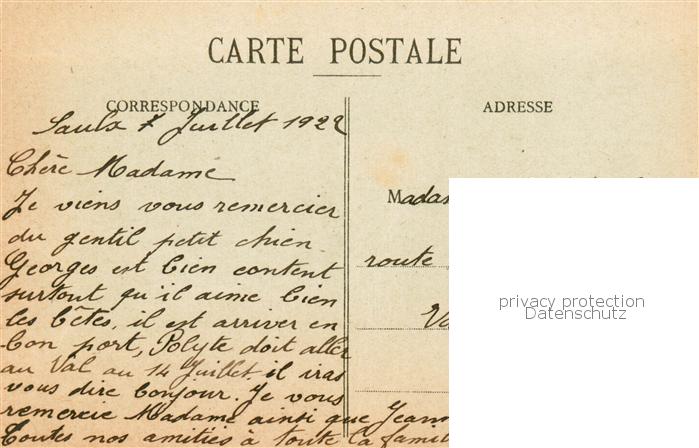 CARTE POSTALE
CORRESPONDANCE
ADRESSE
Saulx 7 Juillet 1922
Chère Madame
Je viens vous remercier
du gentil petit chien
Georges est bien content
surtout qu'il aime bien
les bêtes, il est arriver en
bon port, Polyte doit aller
au Val au 14 Juillet. il iras
vous dire bonjour. Je vous
remercie Madame ainsi que Jeann
Toutes nos amitiés à toute la famil
Madam
route
Va
privacy protection
Datenschutz